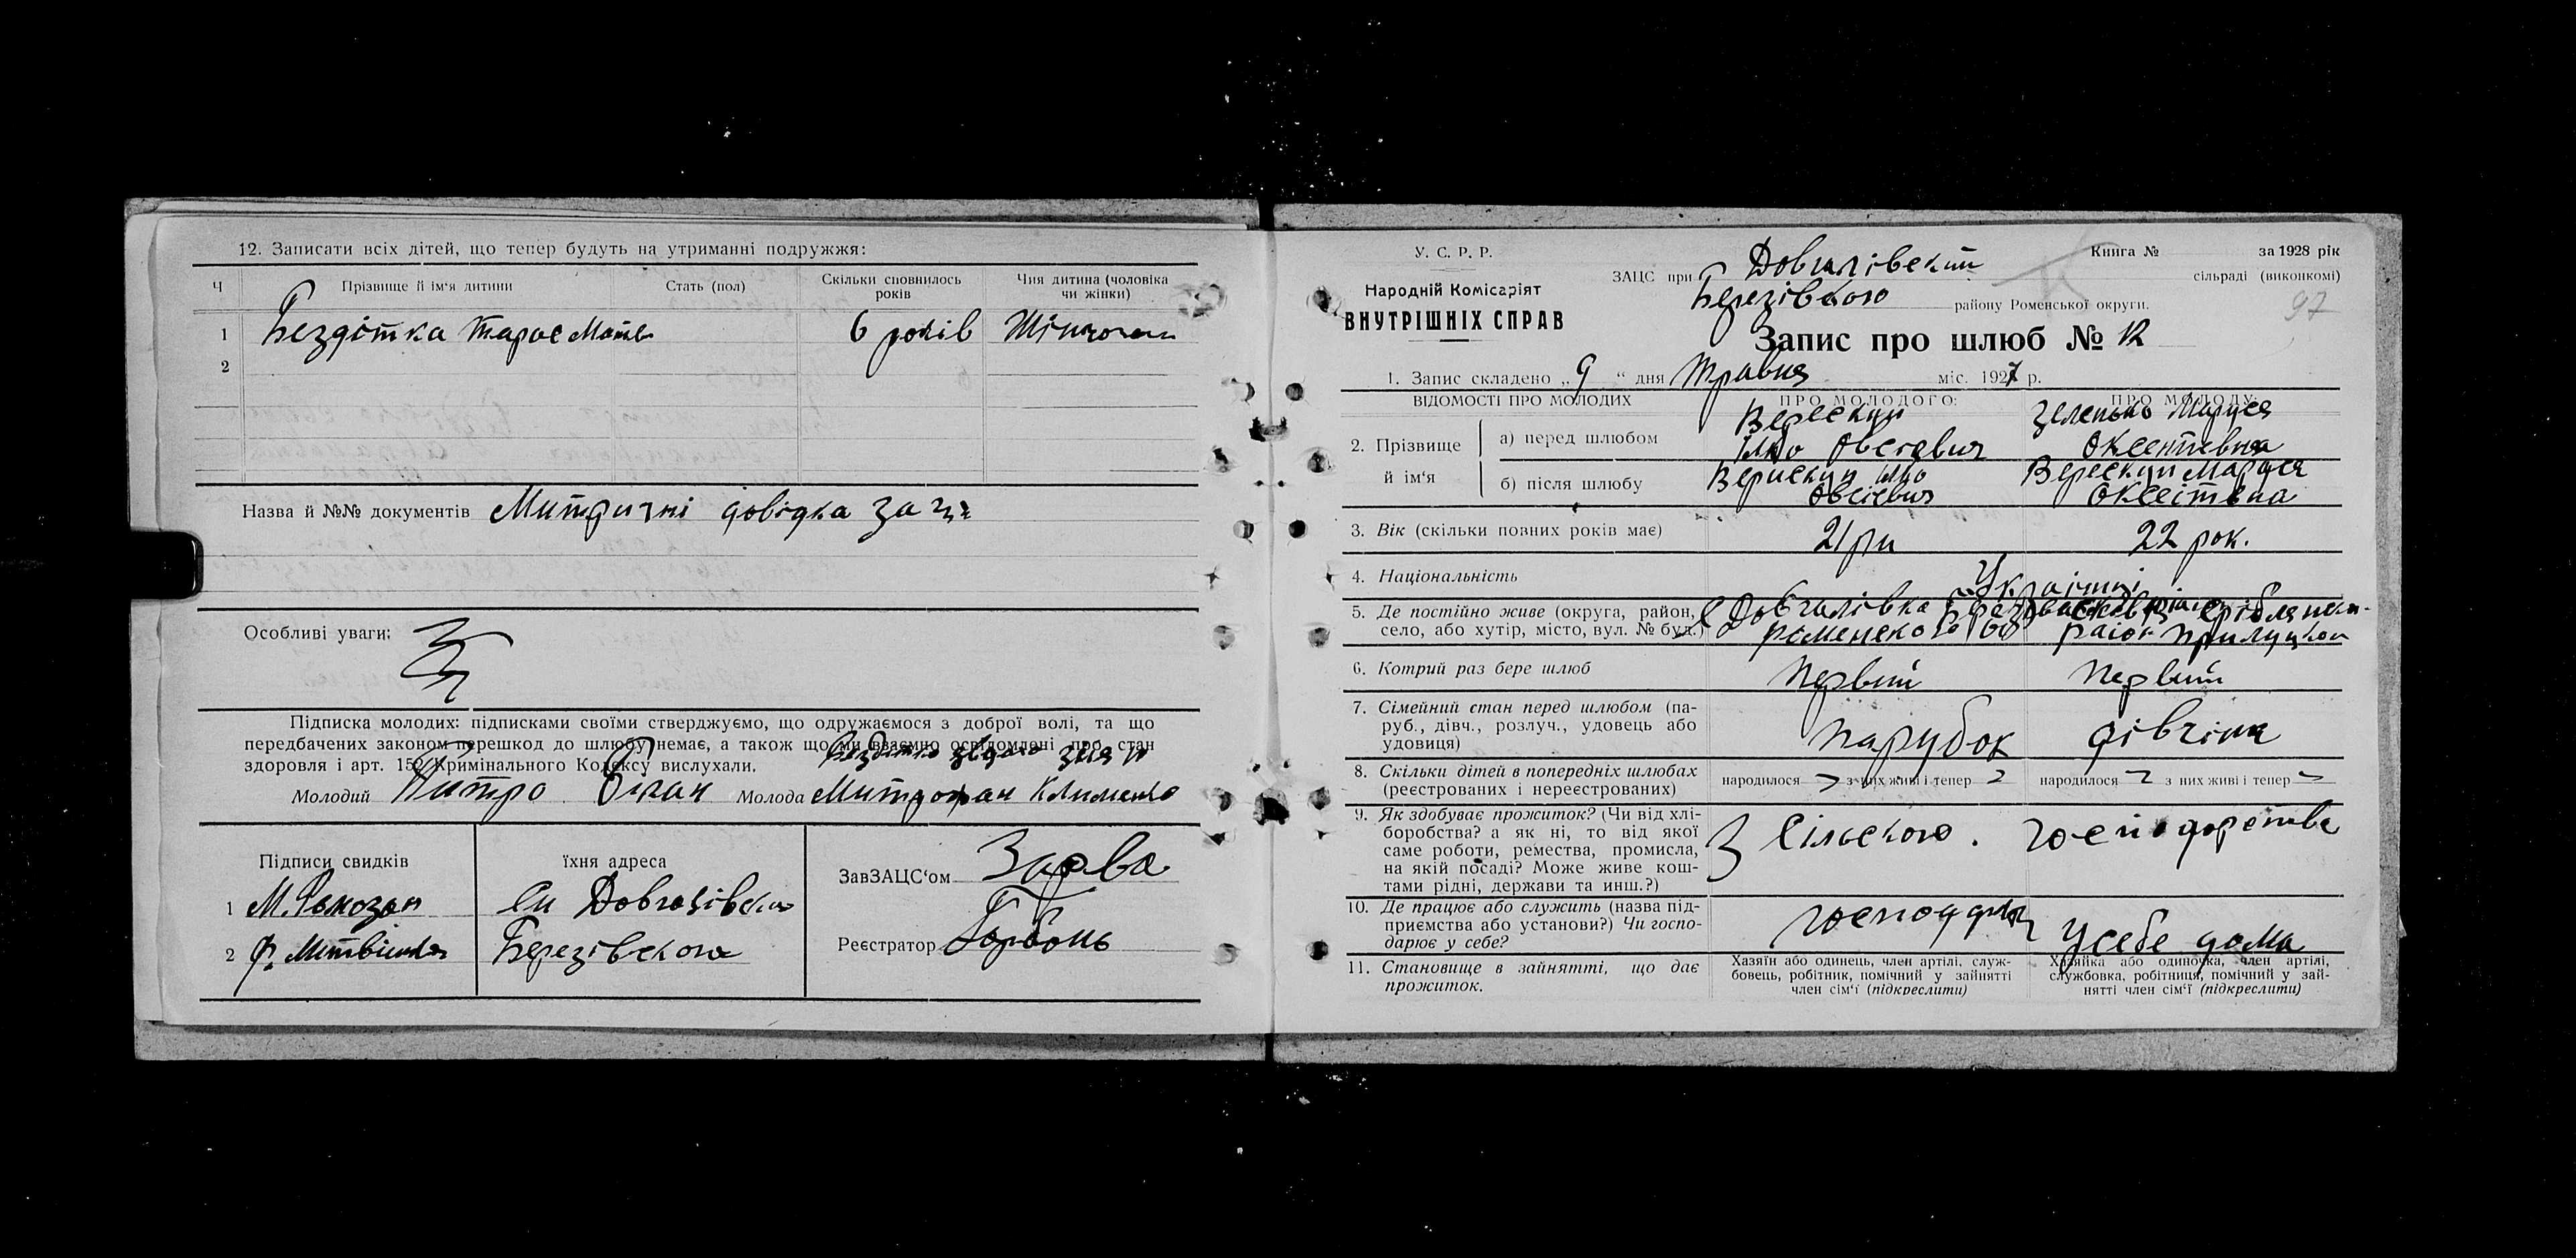 12. Записати всіх дітей, що тепер будуть на утриманні подружжя:
Ч Прізвище й ім'я дитини Стать (пол) Скільки сповнилось років Чия дитина (чоловіка чи жінки)
1 Бездітка Тарас 6 років
2
Назва й №№ документів довідка за
Особливі уваги:
Підписка молодих: підписками своїми стверджуємо, що одружаємося з доброї волі, та що
передбачених законом перешкод до шлюбу немає, а також що ми взаємно освідомлені про стан
здоровля і арт. 15 Кримінального Кодексу вислухали.
Молодий Молода Митрофан Клименко
Підписи свидків їхня адреса
ЗавЗАЦС'ом Зарва
1
2 Березівского
Реєстратор
У. С. Р. Р.
Народній Комісаріят
ВНУТРІШНІХ СПРАВ
ЗАЦС при Довгалівский сільраді (виконкомі)
Березівкого району Роменської округи.
Книга № за 1928 рік
97
Запис про шлюб № 12
1. Запис складено „9“ дня Травня міс. 1927 р.
ВІДОМОСТІ ПРО МОЛОДИХ ПРО МОЛОДОГО: ПРО МОЛОДУ:
2. Прізвище й ім'я
а) перед шлюбом Верескун Зеленько Маруся
Овсієвич Оксентевна
б) після шлюбу Верискун Верескун Маруся
Овсієвич
3. Вік (скільки повних років має) 21 22 рок.
4. Національність Українці
5. Де постійно живе (округа, район,
село, або хутір, місто, вул. № буд.) Довгалівка
6. Котрий раз бере шлюб Первий Первий
7. Сімейний стан перед шлюбом (па-
руб., дівч., розлуч., удовець або
удовиця) Парубок дівчина
8. Скільки дітей в попередніх шлюбах
(реєстрованих і нереєстрованих)
народилося з них живі і тепер народилося з них живі і тепер
9. Як здобуває прожиток? (Чи від хлі-
боробства? а як ні, то від якої
саме роботи, ремества, промисла,
на якій посаді? Може живе кош-
тами рідні, держави та инш.?)
З сільского господарства
10. Де працює або служить (назва під-
приємства або установи?) Чи госпо-
дарює у себе?
у себе дома
11. Становище в зайнятті, що дає
прожиток.
Хазяїн або одинець, член артілі, служ-
бовець, робітник, помічний у зайнятті
член сім'ї (підкреслити)
Хазяйка або одиночка, член артілі,
службовка, робітниця, помічний у зай-
нятті член сім'ї (підкреслити)